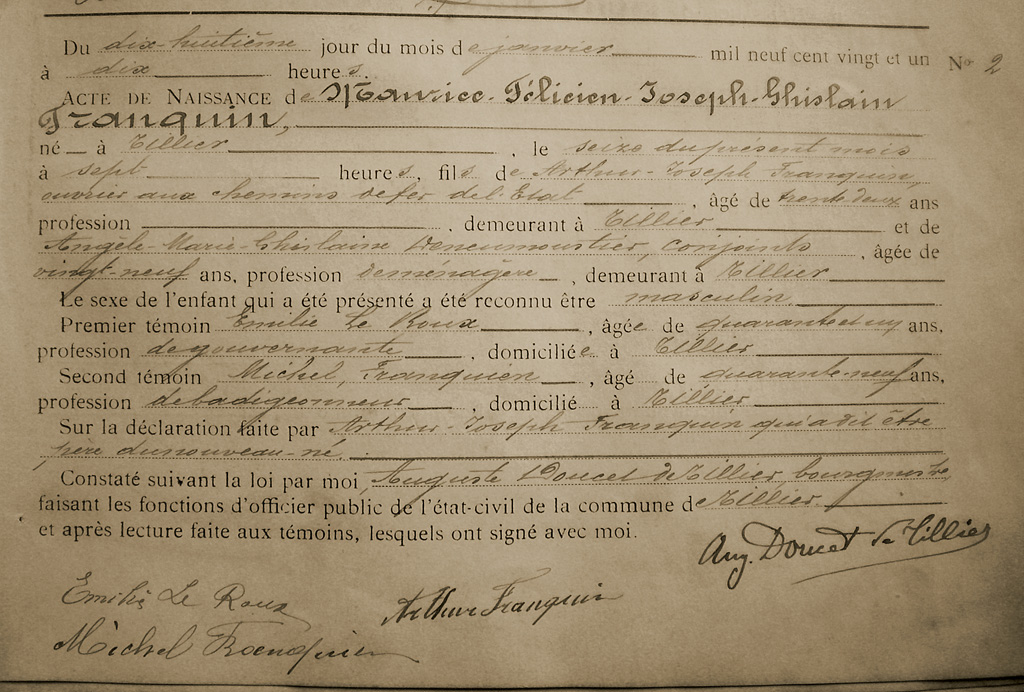 Du dix-huitième jour du mois de janvier mil neuf cent vingt et un No 2
à dix heures.
ACTE DE NAISSANCE de Maurice-Félicien-Joseph-Ghislain
Franquin,
né à Tillier, le seize du présent mois
à sept heures, fils de Arthur-Joseph Franquin,
ouvrier aux chemins de fer de l'Etat, âgé de trente-deux ans
profession, demeurant à Tillier et de
Angèle-Marie-Ghislaine Deneumoustier, conjoints, âgée de
vingt-neuf ans, profession de ménagère, demeurant à Tillier
Le sexe de l'enfant qui a été présenté a été reconnu être masculin.
Premier témoin Emilie Le Roux, âgée de quarante et un ans,
profession de gouvernante, domiciliée à Tillier
Second témoin Michel, Franquien, âgé de quarante-neuf ans,
profession de badigeonneur, domicilié à Tillier
Sur la déclaration faite par Arthur-Joseph Franquin qui a dit être
père du nouveau-né.
Constaté suivant la loi par moi, Auguste Doucet de Tillier, bourgmestre,
faisant les fonctions d'officier public de l'état-civil de la commune de Tillier.
et après lecture faite aux témoins, lesquels ont signé avec moi.
Aug. Doucet de Tillier
Emilie Le Roux
Arthur Franquin
Michel Franquien